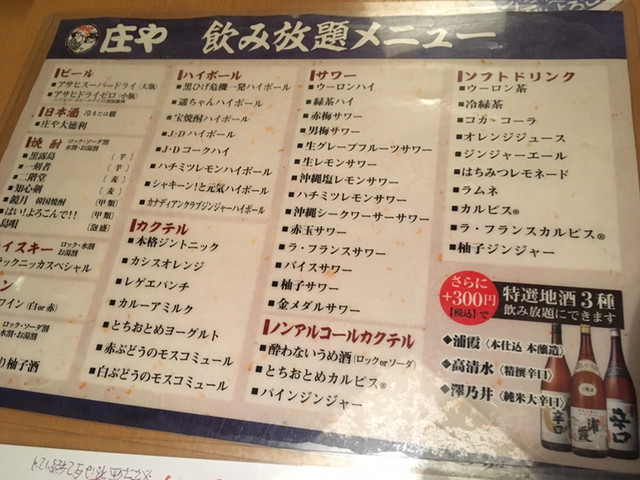 庄や 飲み放題メニュー
ビール
■アサヒスーパードライ(大瓶)
■アサヒドライゼロ(小瓶)
日本酒 冷または燗
■庄や大徳利
焼酎 ロック・ソーダ割
水割・お湯割
■黒霧島 (芋)
■一刻者 (芋)
■二階堂 (麦)
■知心剣 (麦)
■鏡月 韓国焼酎 (甲類)
■はい!よろこんで!! (甲類)
島唄 (泡盛)
イスキー ロック・水割
お湯割
ラックニッカスペシャル
ン
ワイン(白or赤)
ロック・ソーダ割
水割・お湯割
り柚子酒
ハイボール
■黒ひげ危機一発ハイボール
■道ちゃんハイボール
■宝焼酎ハイボール
■J・Dハイボール
■J・Dコークハイ
■ハチミツレモンハイボール
■シャキーン!と元気ハイボール
■カナディアンクラブジンジャーハイボール
カクテル
■本格ジントニック
■カシスオレンジ
■レゲエパンチ
■カルーアミルク
■とちおとめヨーグルト
■赤ぶどうのモスコミュール
■白ぶどうのモスコミュール
サワー
■ウーロンハイ
■緑茶ハイ
■赤梅サワー
■男梅サワー
■生グレープフルーツサワー
■生レモンサワー
■沖縄塩レモンサワー
■ハチミツレモンサワー
■沖縄シークワーサーサワー
■赤玉サワー
■ラ・フランスサワー
■バイスサワー
■柚子サワー
■金メダルサワー
ノンアルコールカクテル
■酔わないうめ酒(ロックorソーダ)
■とちおとめカルピス®
■パインジンジャー
ソフトドリンク
■ウーロン茶
■冷緑茶
■コカ・コーラ
■オレンジジュース
■ジンジャーエール
■はちみつレモネード
■ラムネ
■カルピス®
■ラ・フランスカルピス®
■柚子ジンジャー
さらに
+300円
【税込】で
特選地酒3種
飲み放題にできます
◆浦霞〈本仕込 本醸造〉
◆高清水〈精撰辛口〉
◆澤乃井〈純米大辛口〉
辛口
浦霞
辛口